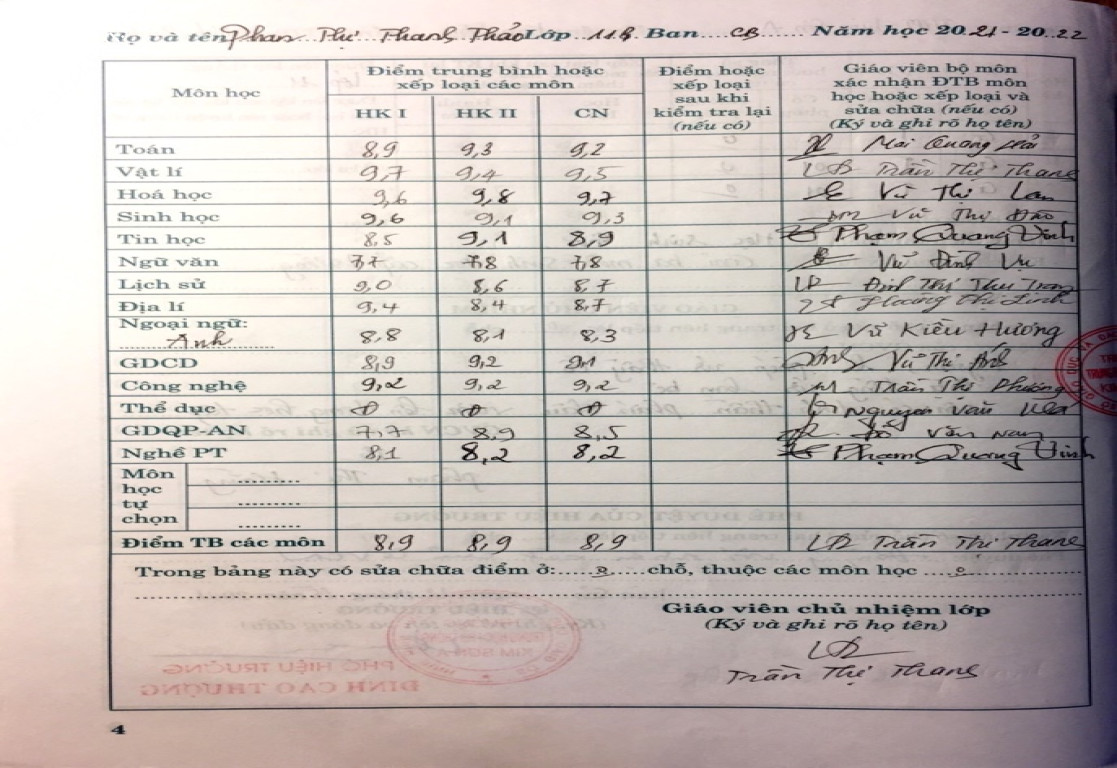 Họ và tên Phan Thị Thanh Thảo Lớp 11B Ban CB Năm học 2021 - 2022
Môn học Điểm trung bình hoặc xếp loại các môn Điểm hoặc xếp loại sau khi kiểm tra lại (nếu có) Giáo viên bộ môn xác nhận ĐTB môn học hoặc xếp loại và sửa chữa (nếu có) (Ký và ghi rõ họ tên)
HK I HK II CN
Toán 8,9 9,3 9,2 Mai Quang Hải
Vật lí 9,7 9,4 9,5 Trần Thị Thang
Hoá học 9,6 9,8 9,7 Vũ Thị Lan
Sinh học 9,6 9,1 9,3 Vũ Thị Đào
Tin học 8,5 9,1 8,9 Phạm Quang Vinh
Ngữ văn 7,7 7,8 7,8 Vũ Đình Vụ
Lịch sử 9,0 8,6 8,7 Đinh Thị Thu Trang
Địa lí 9,4 8,4 8,7 Hoàng Thị Linh
Ngoại ngữ:
Anh 8,8 8,1 8,3 Vũ Kiều Hương
GDCD 8,9 9,2 9,1 Vũ Thị Ánh
Công nghệ 9,2 9,2 9,2 Trần Thị Phương
Thể dục Đ Đ Đ Nguyen Văn
GDQP-AN 7,7 8,9 8,5 Văn Nam
Nghề PT 8,1 8,2 8,2 Phạm Quang Vinh
Môn học tự chọn
Điểm TB các môn 8,9 8,9 8,9 Trần Thị Thang
Trong bảng này có sửa chữa điểm ở: 0 chỗ, thuộc các môn học 0
Giáo viên chủ nhiệm lớp
(Ký và ghi rõ họ tên)
Trần Thị Thang
4